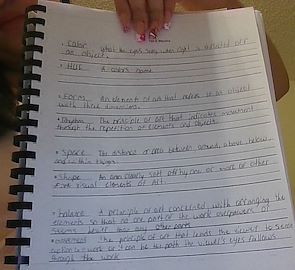 • Color What the eyes see when light is reflected off
an object.
• HUE A color's name
• Form An element of art that refers to an object
with three dimensions.
• Rhythm The principle of art that indicates movement
through the repetition of elements and objects.
• Space The distance or area between, around, above, below,
and within things.
• Shape An area clearly set off by one or more of other
five visual elements of art
• Balance A principle of art concerned with arranging the
elements so that no one part of the work overpowers or
seems heavier than any other part.
• movement The principle of art that leads the viewer to sense
action in a work or it can be the path the viewer's eye follows
through the work